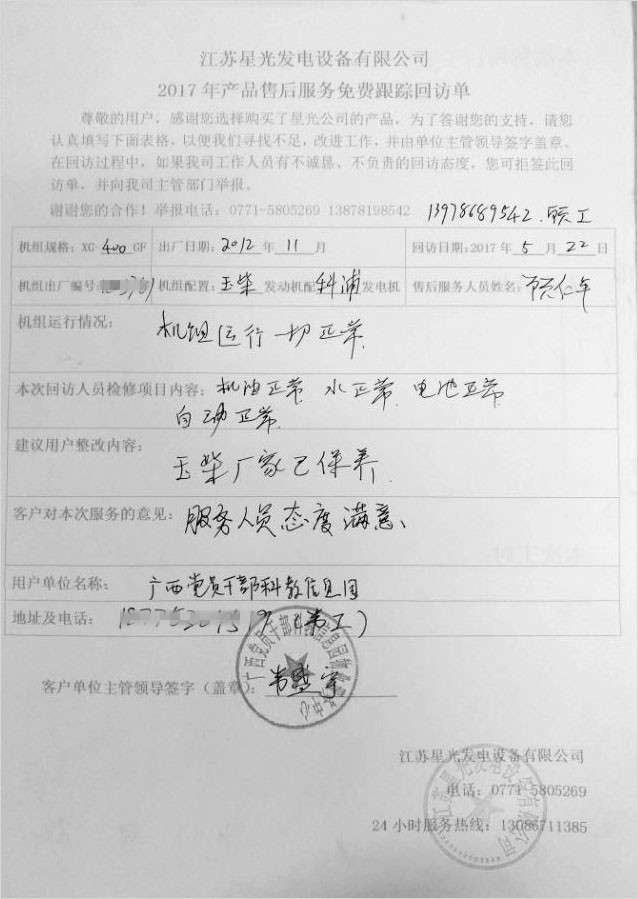 江苏星光发电设备有限公司
2017年产品售后服务免费跟踪回访单
尊敬的用户，感谢您选择购买了星光公司的产品，为了答谢您的支持，请您
认真填写下面表格，以便我们寻找不足，改进工作，并由单位主管领导签字盖章。
在回访过程中，如果我司工作人员有不诚恳、不负责的回访态度，您可拒签此回
访单，并向我司主管部门举报。
谢谢您的合作！举报电话：0771-5805269 13878198542 13978689542
机组规格：XG-400GF 出厂日期：2012年11月 回访日期：2017年5月22日
机组出厂编号： 机组配置：玉柴发动机配科浦发电机 售后服务人员姓名：
机组运行情况：机组运行一切正常
本次回访人员检修项目内容：机油正常 水正常、电池正常
自动正常
建议用户整改内容：
玉柴厂家已保养
客户对本次服务的意见：服务人员态度满意
用户单位名称：广西党员干部科教信息园
地址及电话：
客户单位主管领导签字（盖章）：
江苏星光发电设备有限公司
电话：0771-5805269
24小时服务热线：13086711385
江苏星光发电设备有限公司